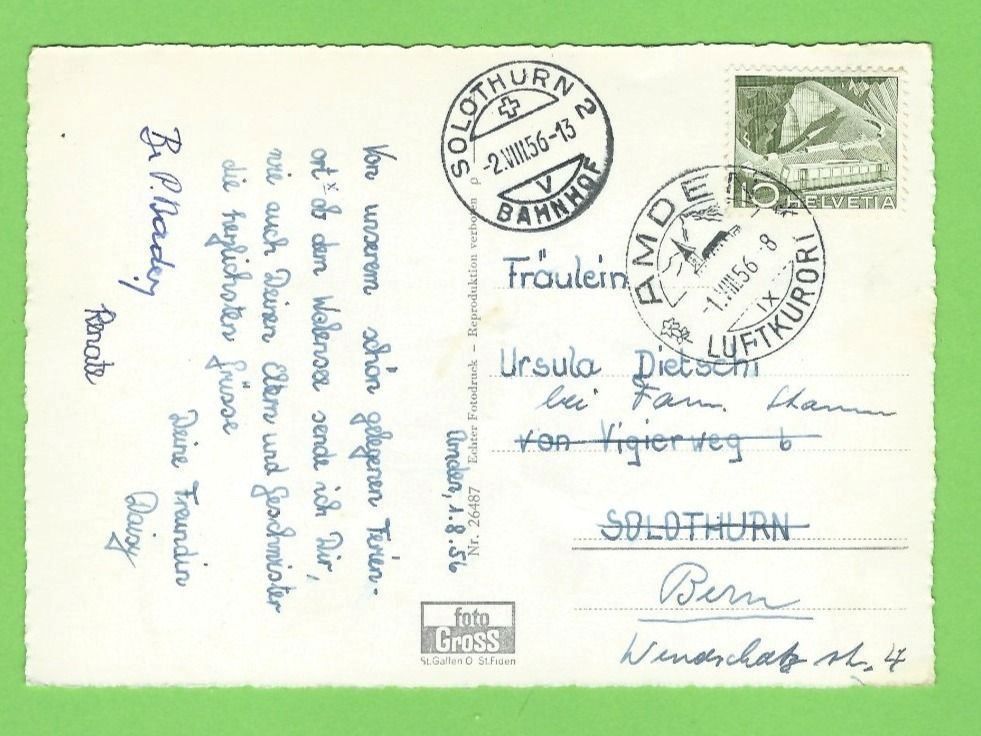 Amden, 1.8.56
Von unserem schön gelegenen Ferien-
ort x ob dem Walensee sende ich Dir,
wie auch Deinen Eltern und Geschwister
die herzlichsten Grüsse
Deine Freundin
Daisy
Renate
Nr. 26487 Echter Fotodruck – Reproduktion verboten
foto
Gross
St.Gallen O St.Fiden
SOLOTHURN 2
-2.VIII.56-13
V
BAHNHOF
5 HELVETIA
AMDEN
-1.VIII.56 - 8
IX
LUFTKURORT
Fräulein
Ursula Dietschi
bei Fam. Stamm
von Vigierweg 6
SOLOTHURN
Bern